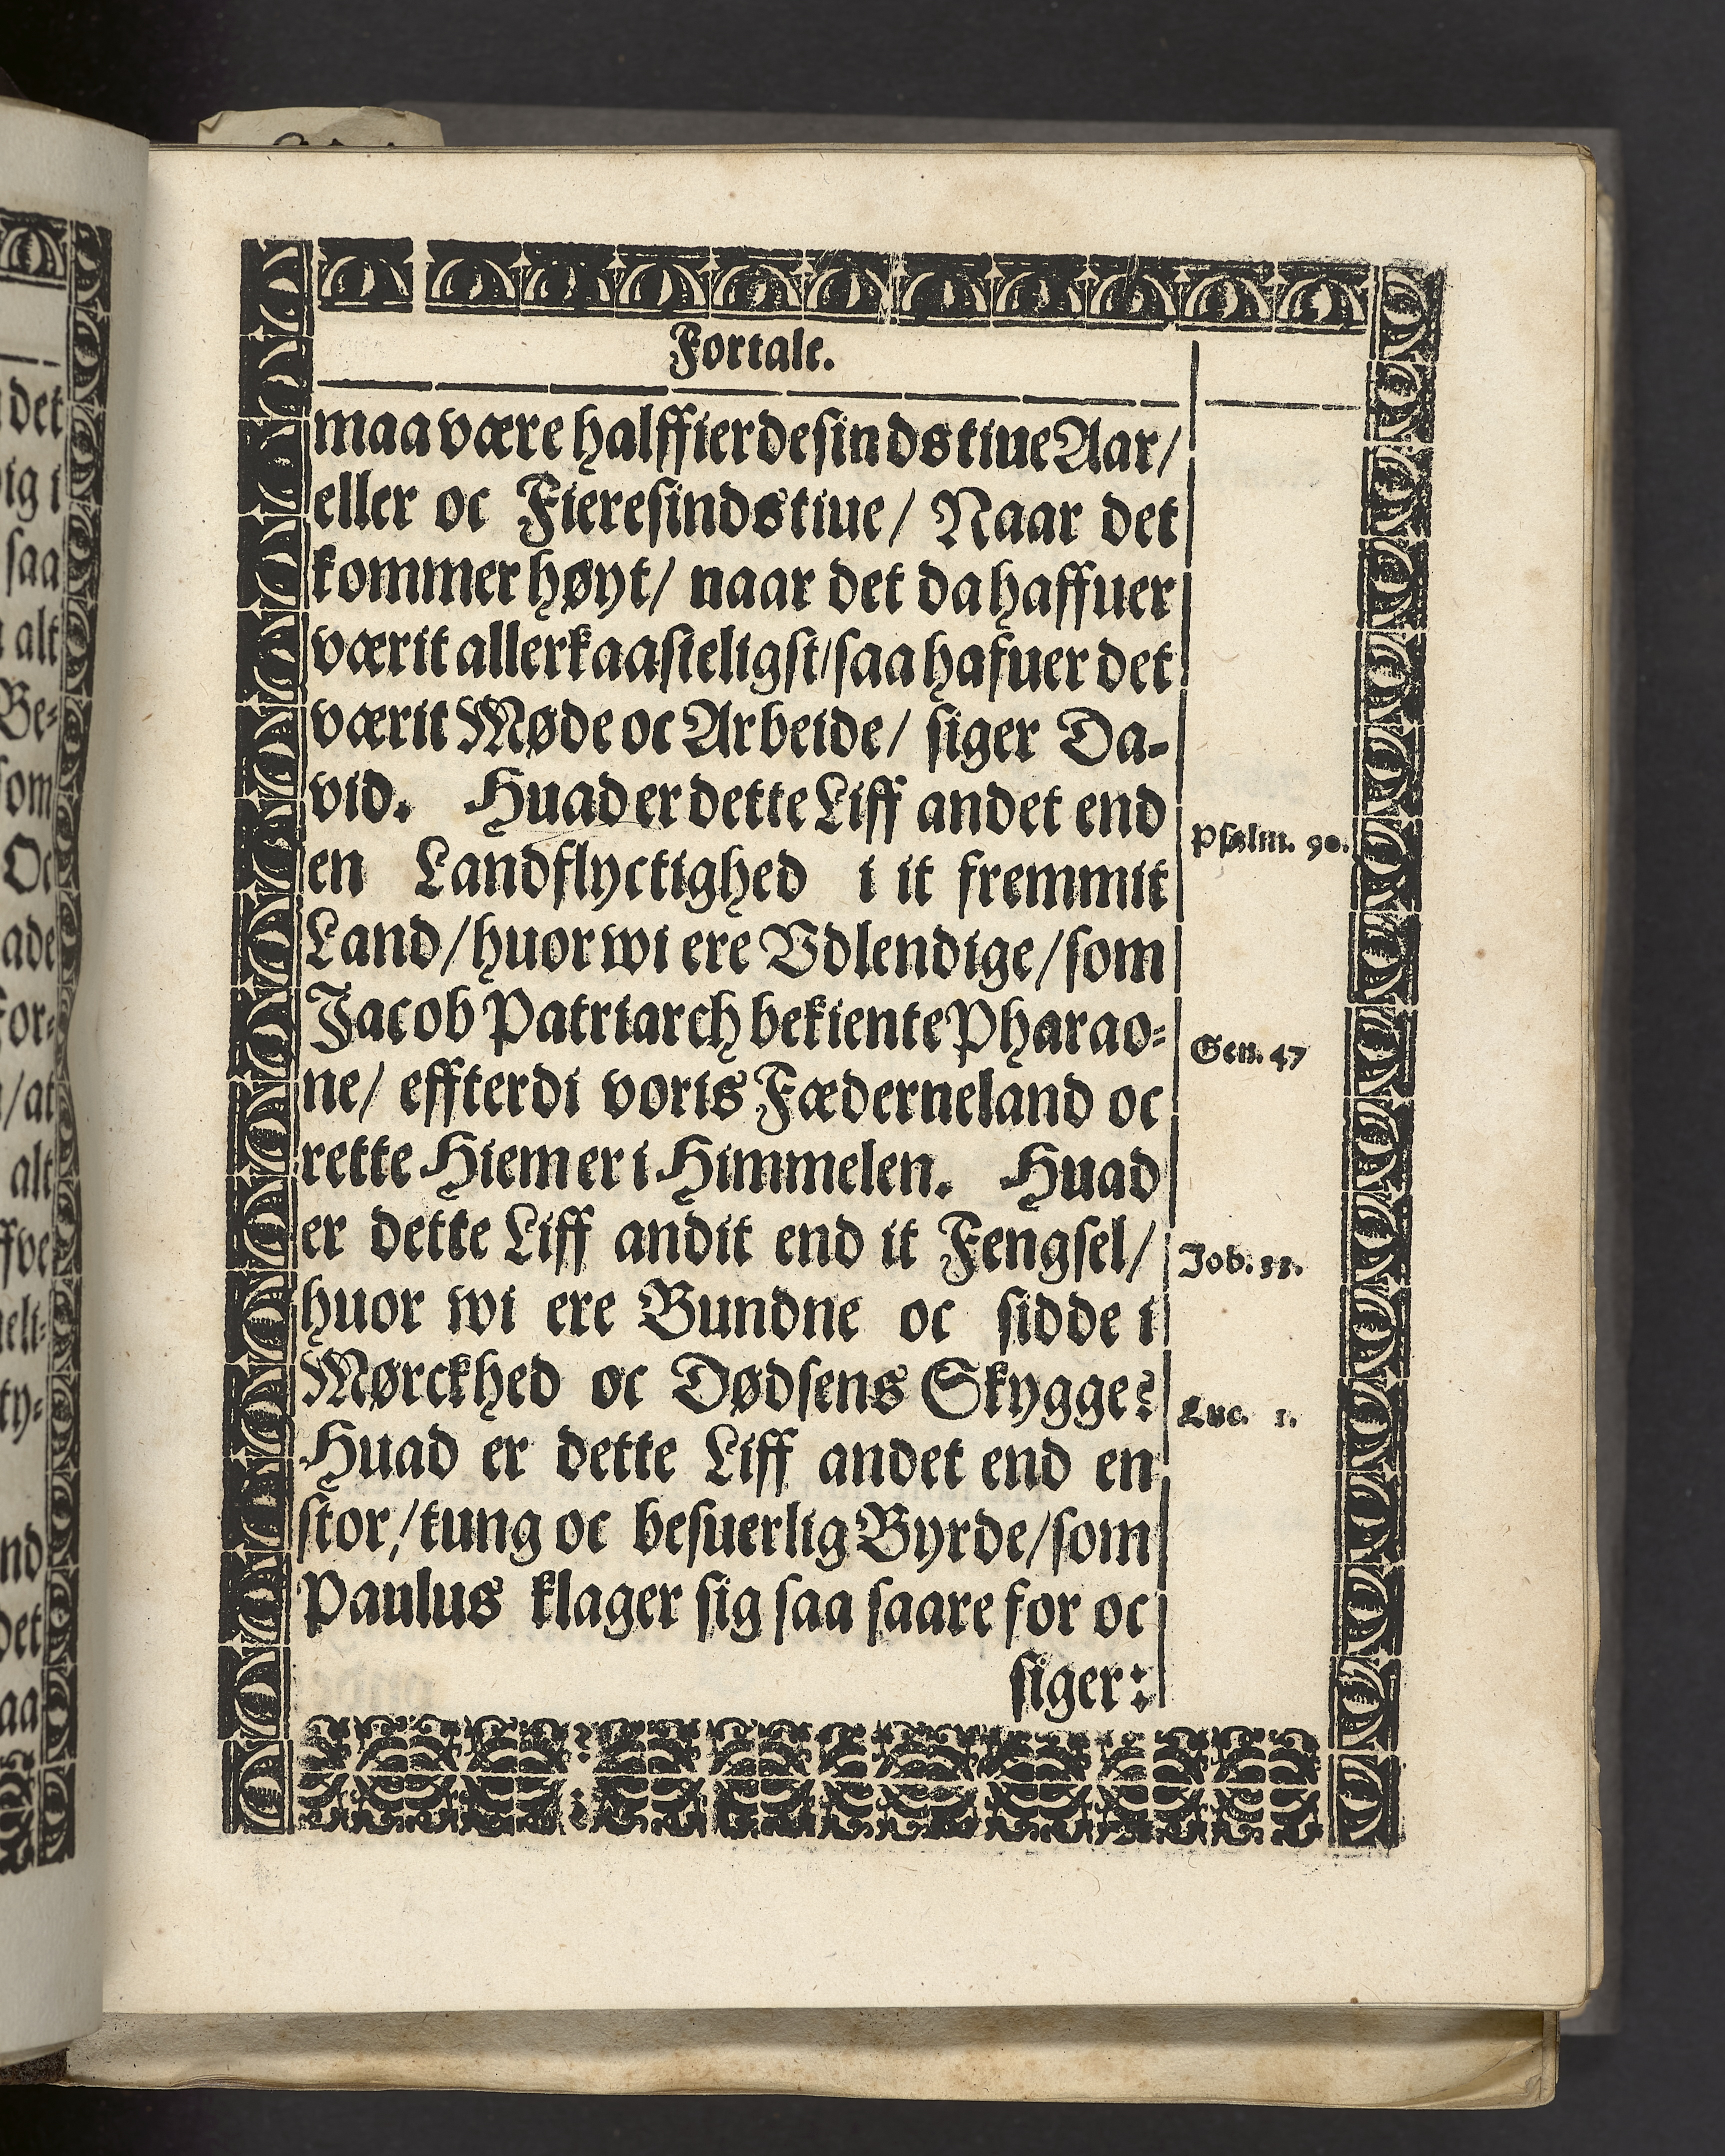 Fortale.
maa være halffierdesindstiue Aar/
eller oc Fieresindstiue/ Naar det
kommer høyt/ naar det da haffuer
værit allerkaasteligst/ saa hafuer det
værit Møde oc Arbeide/ siger Da-
vid. Huad er dette Liff andet end
Psalm. 90.
en Landflyctighed i it fremmit
Land/ huor wi ere Vdlendige/ som
Jacob Patriarch bekiente Pharao-
Gen. 47
ne/ effterdi voris Fæderneland oc
rette Hiem er i Himmelen. Huad
er dette Liff andit end it Fengsel/
Job. 33.
huor wi ere Bundne oc sidde i
Mørckhed oc Dødsens Skygge?
Luc. 1.
Huad er dette Liff andet end en
stor/ tung oc besuerlig Byrde/ som
Paulus klager sig saa saare for oc
siger:
det
ig i
saa
alt
Be-
som
Oc
ade
For-
/at
alt
ffve
eli-
ty-
nd
det
aa